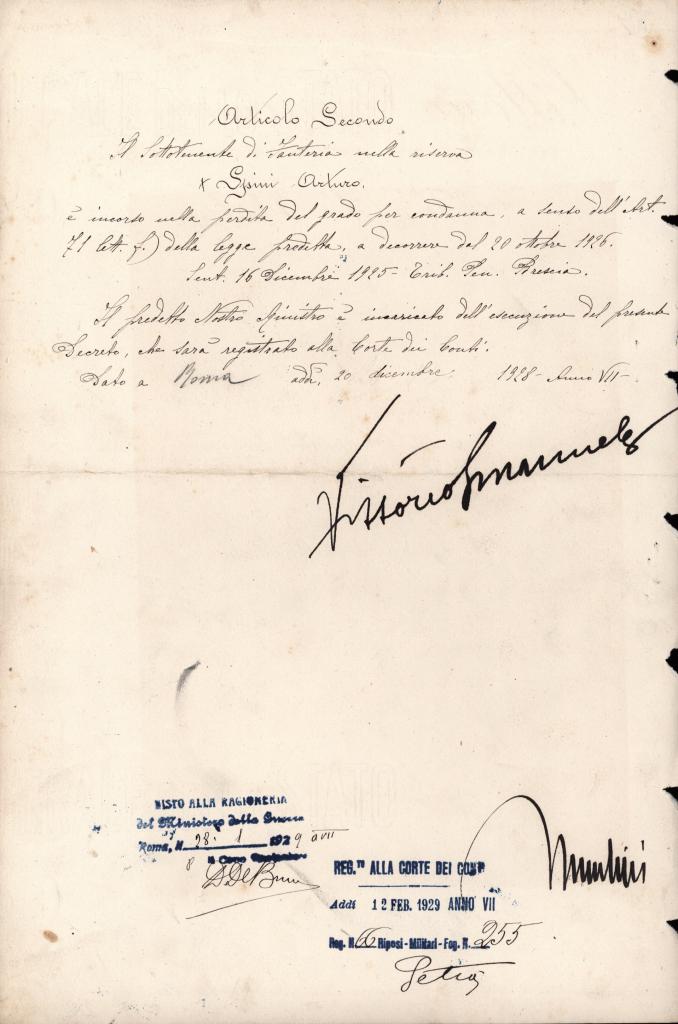 Articolo Secondo
Il Sottotenente di Fanteria nella riserva
+ Spini Arturo.
è incorso nella perdita del grado per condanna, a senso dell'Art.
71 lett. f.) della legge predetta, a decorrere dal 20 ottobre 1926.
Sent. 16 Dicembre 1925 - Trib. Pen. Brescia.
Il predetto Nostro Ministro è incaricato dell'esecuzione del presente
Decreto, che sarà registrato alla Corte dei Conti.
Dato a Roma addì, 20 dicembre 1928 - Anno VII -
Vittorio Emanuele
VISTO ALLA RAGIONERIA
del Ministero della Guerra
Roma, li 28. 1 1929 a VII
Il Capo
REG.TO ALLA CORTE DEI CONTI
Addì 12 FEB. 1929 ANNO VII
Reg. N. 6 Riposi - Militari - Fog. N. 255